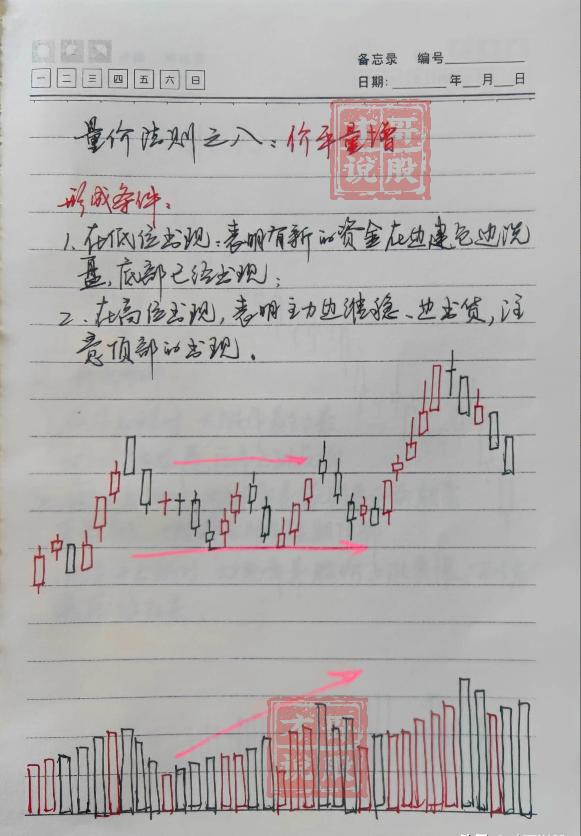 备忘录 编号
一 二 三 四 五 六 日
日期: 年 月 日
量价法则之八：价平量增
形成条件：
1、在低位出现：表明有新的资金在边建仓边洗
盘，底部已经出现；
2、在高位出现，表明主力边维稳、边出货，注
意顶部的出现。
哥
说股
说股